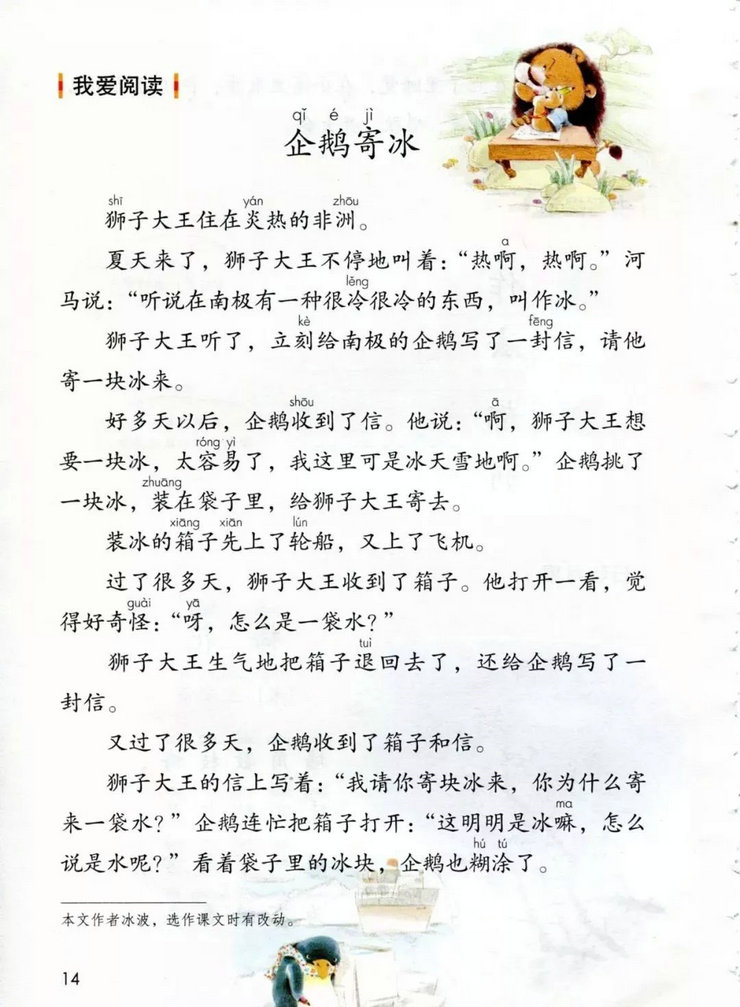 我爱阅读
qǐ é jì
企鹅寄冰
shī yán zhōu
狮子大王住在炎热的非洲。
a
夏天来了，狮子大王不停地叫着：“热啊，热啊。”河
lěng
马说：“听说在南极有一种很冷很冷的东西，叫作冰。”
kè fēng
狮子大王听了，立刻给南极的企鹅写了一封信，请他
寄一块冰来。
shōu ā
好多天以后，企鹅收到了信。他说：“啊，狮子大王想
róng yì
要一块冰，太容易了，我这里可是冰天雪地啊。”企鹅挑了
zhuāng
一块冰，装在袋子里，给狮子大王寄去。
xiāng xiān lún
装冰的箱子先上了轮船，又上了飞机。
过了很多天，狮子大王收到了箱子。他打开一看，觉
guài yā
得好奇怪：“呀，怎么是一袋水？”
tuì
狮子大王生气地把箱子退回去了，还给企鹅写了一
封信。
又过了很多天，企鹅收到了箱子和信。
狮子大王的信上写着：“我请你寄块冰来，你为什么寄
ma
来一袋水？”企鹅连忙把箱子打开：“这明明是冰嘛，怎么
hú tú
说是水呢？”看着袋子里的冰块，企鹅也糊涂了。
本文作者冰波，选作课文时有改动。
14